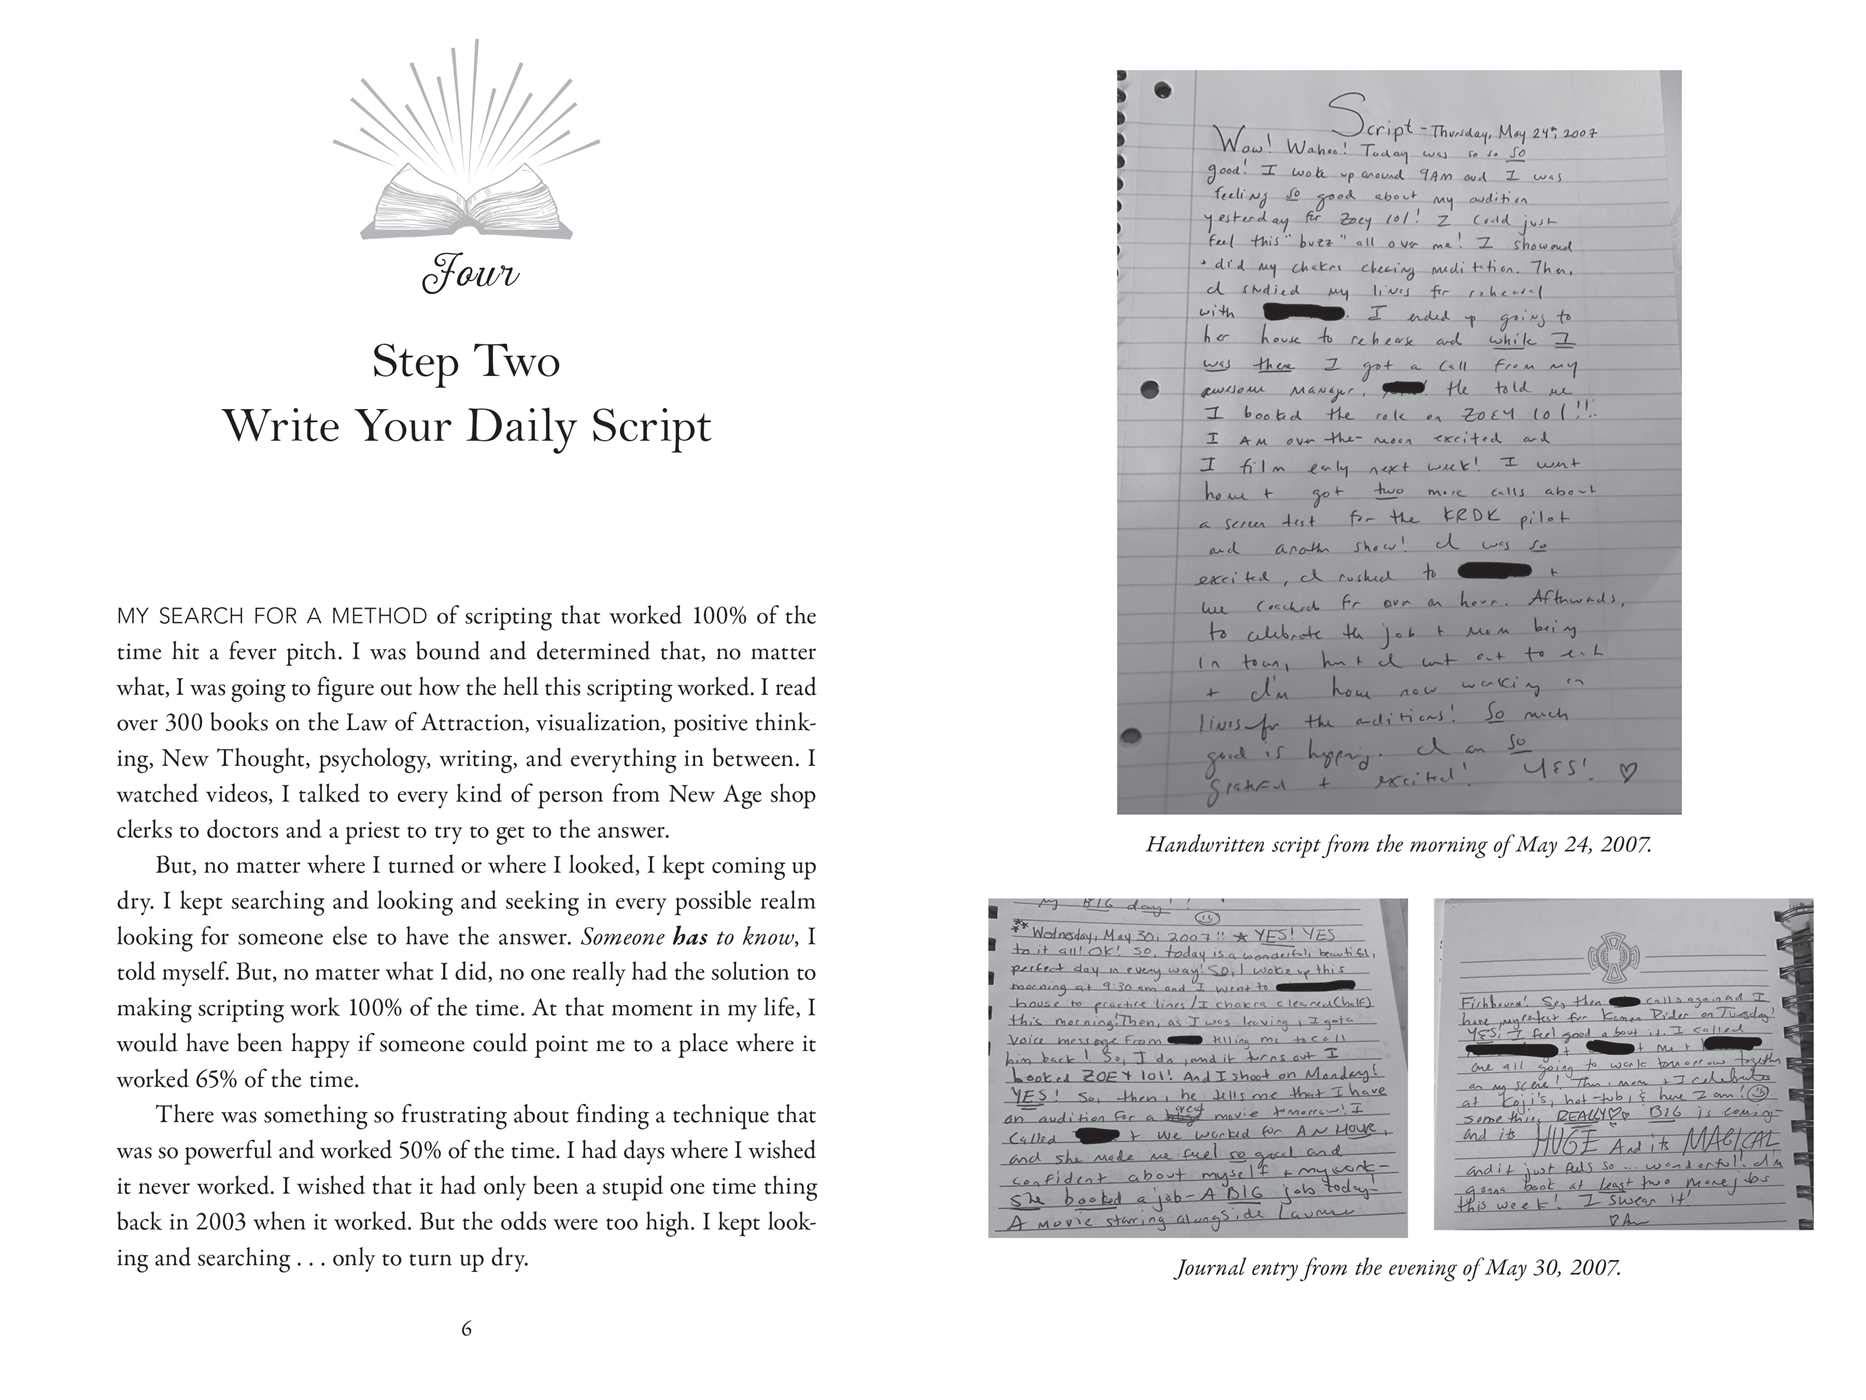 Four
Step Two
Write Your Daily Script
MY SEARCH FOR A METHOD of scripting that worked 100% of the
time hit a fever pitch. I was bound and determined that, no matter
what, I was going to figure out how the hell this scripting worked. I read
over 300 books on the Law of Attraction, visualization, positive think-
ing, New Thought, psychology, writing, and everything in between. I
watched videos, I talked to every kind of person from New Age shop
clerks to doctors and a priest to try to get to the answer.
But, no matter where I turned or where I looked, I kept coming up
dry. I kept searching and looking and seeking in every possible realm
looking for someone else to have the answer. Someone has to know, I
told myself. But, no matter what I did, no one really had the solution to
making scripting work 100% of the time. At that moment in my life, I
would have been happy if someone could point me to a place where it
worked 65% of the time.
There was something so frustrating about finding a technique that
was so powerful and worked 50% of the time. I had days where I wished
it never worked. I wished that it had only been a stupid one time thing
back in 2003 when it worked. But the odds were too high. I kept look-
ing and searching . . . only to turn up dry.
6
Script - Thursday, May 24th, 2007
Wow! Wahoo! Today was so so so
good! I woke up around 9AM and I was
feeling so good about my audition
yesterday for Zoey 101! I could just
feel this "buzz" all over me! I showered
+ did my chakra clearing meditation. Then,
I studied my lines for rehearsal
with I ended up going to
her house to rehearse and while I
was there I got a call from my
awesome manager, ! He told me
I booked the role on ZOEY 101!!!
I AM over-the-moon excited and
I film early next week! I went
home + got two more calls about
a screen test for the KRDK pilot
and another show! I was so
excited, I rushed to +
we coached for over an hour. Afterwards,
to celebrate the job + mom being
in town, I went out to eat
+ I'm home now working on
lines for the auditions! So much
good is happening. I am so
grateful + excited! YES! ♡
Handwritten script from the morning of May 24, 2007.
My BIG day!!
** Wednesday, May 30, 2007!! ★ YES! YES
to it all! OK! So, today is a wonderful, beautiful,
perfect day in every way! So, I woke up this
morning at 9:30 am and I went to
house to practice lines/I chakra cleared (half)
this morning! Then, as I was leaving, I got a
voice message from telling me to call
him back! So, I do, and it turns out I
booked ZOEY 101! And I shoot on Monday!
YES! So, then, he tells me that I have
an audition for a great movie tomorrow! I
called + we worked for AN HOUR,
and she made me feel so good and
confident about myself + my work-
She booked a job- A BIG job today!
A movie staring alongside Laurence
Fishburne! So, then calls again and I
have my test for Kamen Rider on Tuesday!
YES! I feel good about it. I called
+ + me +
are all going to work tomorrow together
on my scene! Then, mom + I celebrate
at Koji's, hot-tub, & here I am!
something REALLY♡♡ BIG is coming-
and it's HUGE And its MAGICAL
and it just feels so... wonderful! I'm
gonna book at least two money jobs
this week! I swear it!
Journal entry from the evening of May 30, 2007.